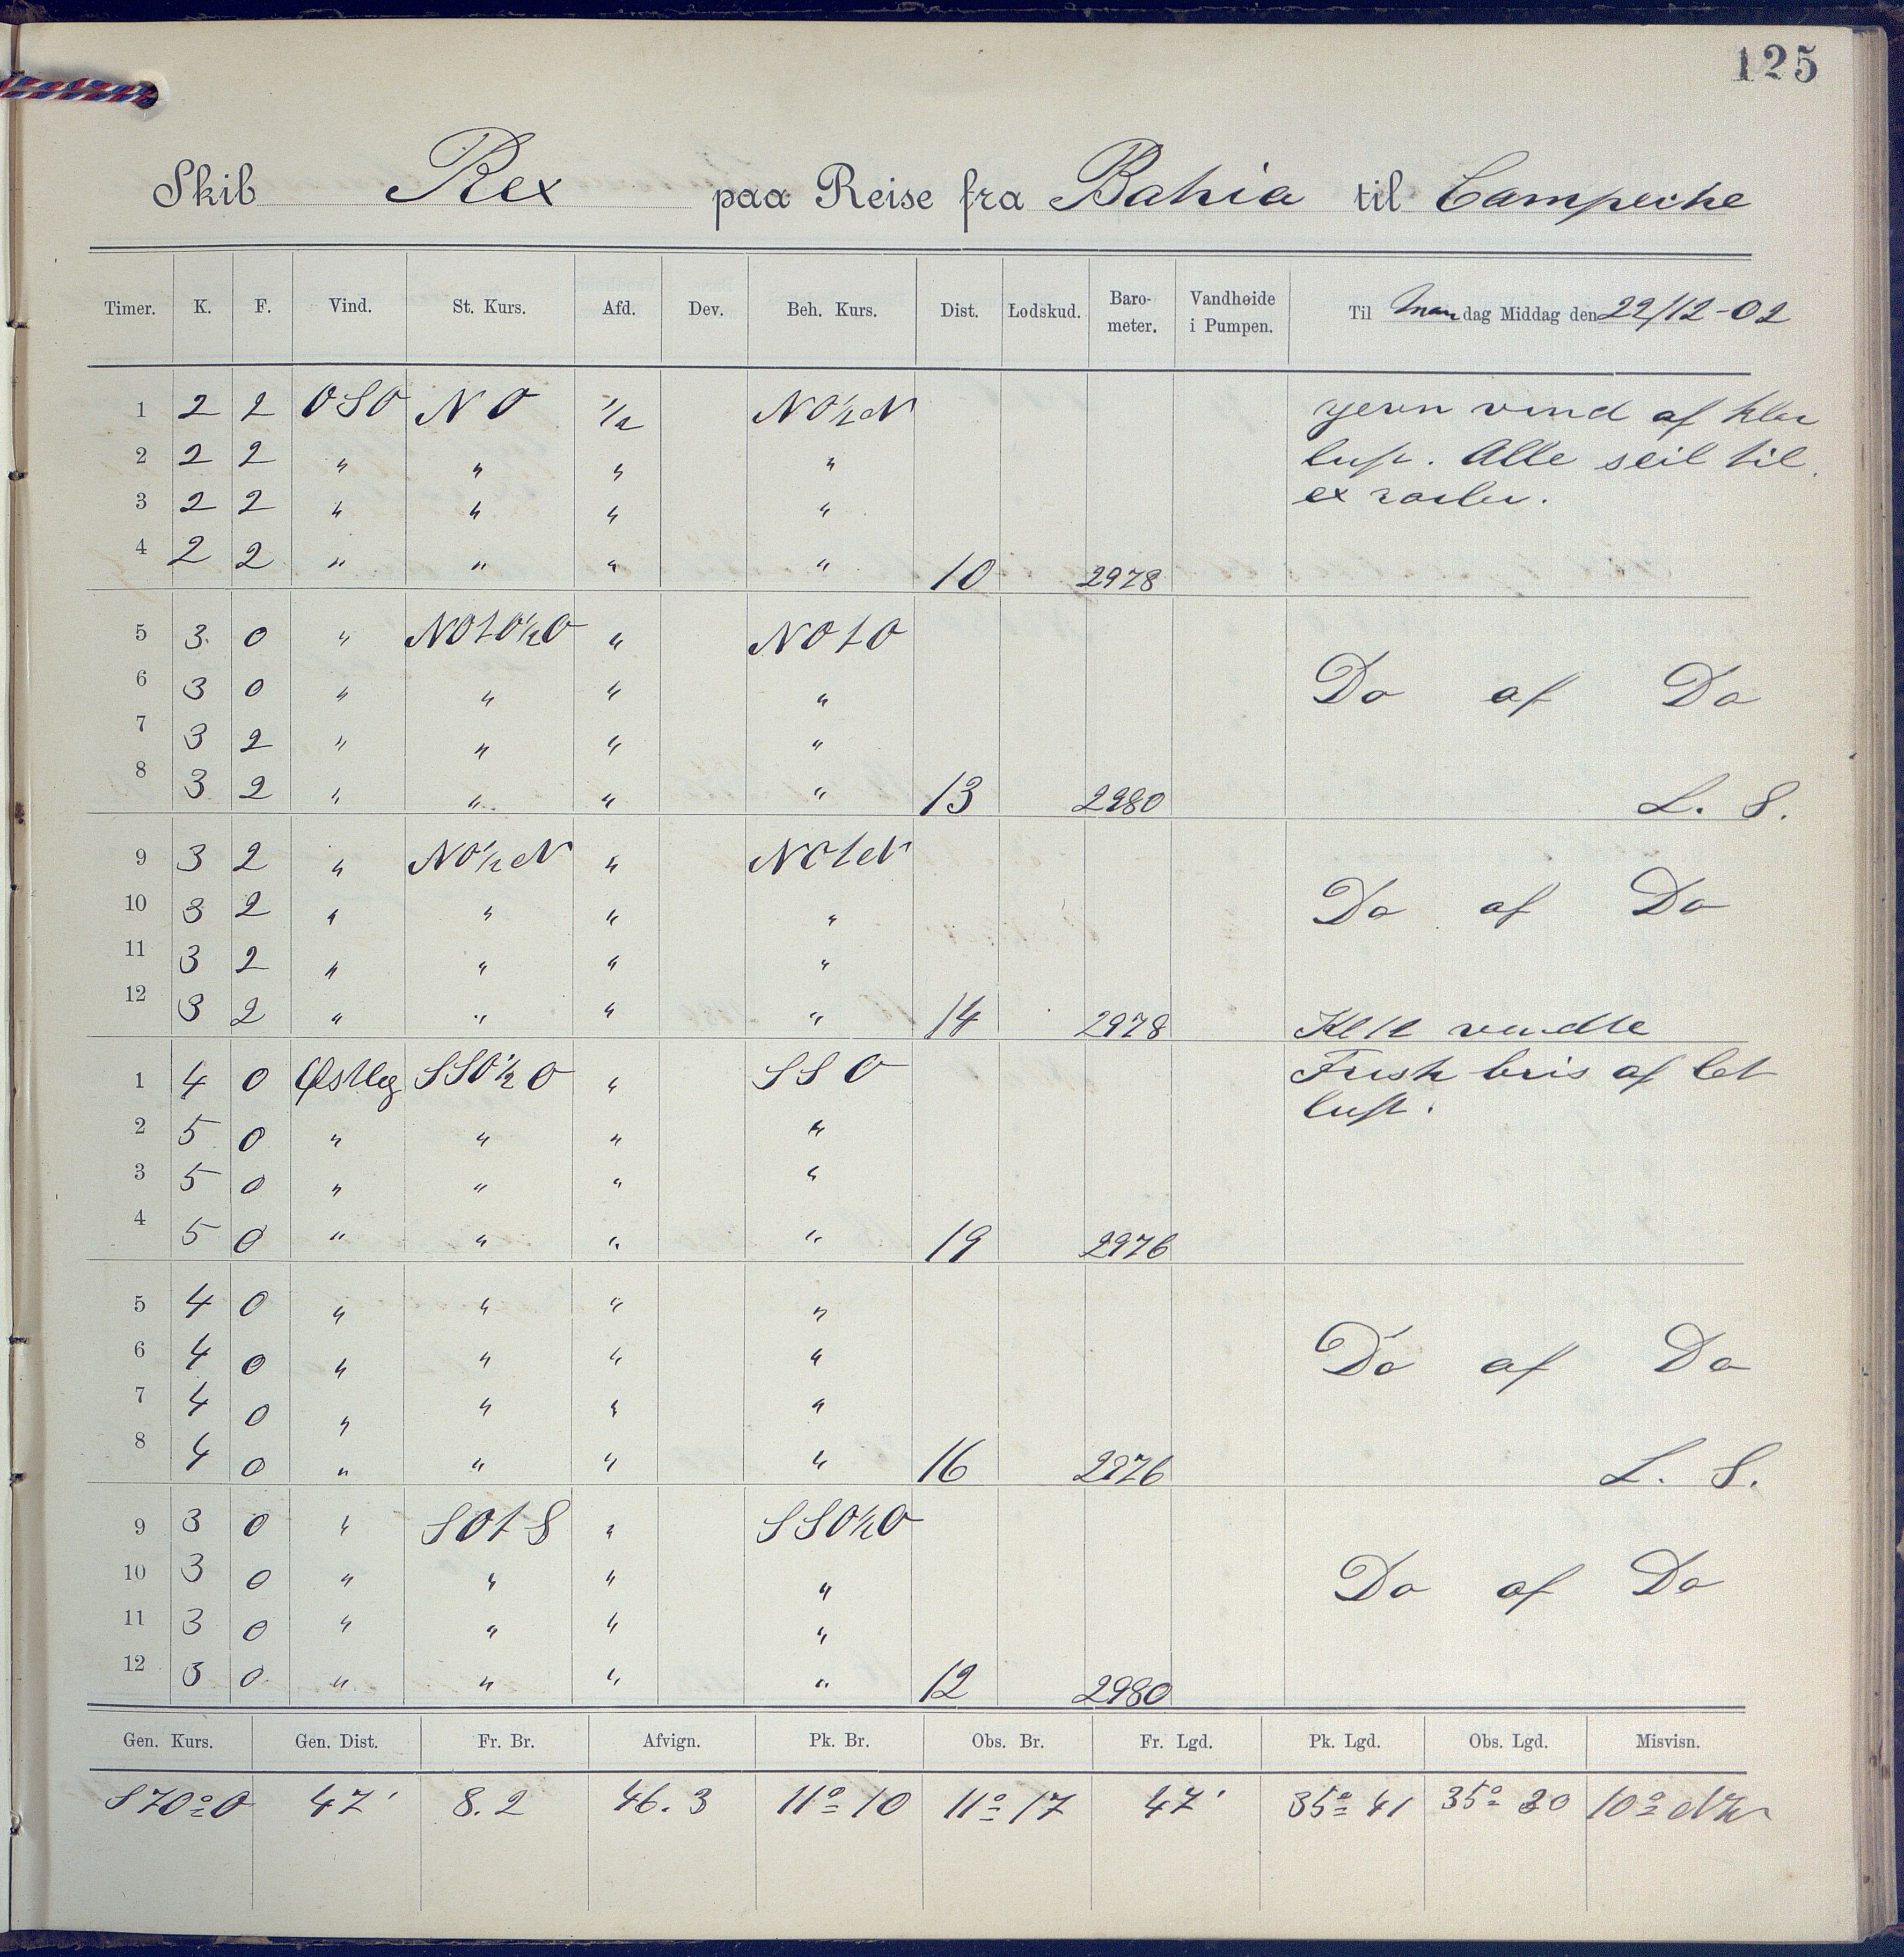 125
Skib Rex paa Reise fra Bahia til Campeche
Timer. K. F. Vind. St. Kurs. Afd. Dev. Beh. Kurs. Dist. Lodskud. Baro-meter. Vandhøide i Pumpen. Til Mandag Middag den 22/12-02
1 2 2 OSO NO 1/2 NO½N jevn vind af klar
2 2 2 " " " " luft. Alle seil til
3 2 2 " " " " ex
4 2 2 " " " " 10 2978
5 3 0 " NOtO½O " NOtO
6 3 0 " " " " Do af Do
7 3 2 " " " "
8 3 2 " " " " 13 2980 L. S.
9 3 2 " NO½N " NOtN
10 3 2 " " " " Do af Do
11 3 2 " " " "
12 3 2 " " " " 14 2978 Kl 12 vendte
1 4 0 Østleg SSO½O " SSO Frisk bris af let
2 5 0 " " " " luft.
3 5 0 " " " "
4 5 0 " " " " 19 2976
5 4 0 " " " "
6 4 0 " " " " Do af Do
7 4 0 " " " "
8 4 0 " " " " 16 2976 L. S.
9 3 0 " SOtS " SSO½O
10 3 0 " " " " Do af Do
11 3 0 " " " "
12 3 0 " " " " 12 2980
Gen. Kurs. Gen. Dist. Fr. Br. Afvign. Pk. Br. Obs. Br. Fr. Lgd. Pk. Lgd. Obs. Lgd. Misvisn.
S70°O 47' 8.2 46.3 11° 10 11° 17 47' 35° 41 35° 20 10°